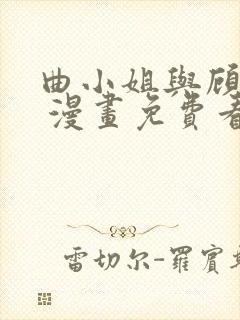 曲小姐與顧
漫畫免費看
雷切尔-羅賓